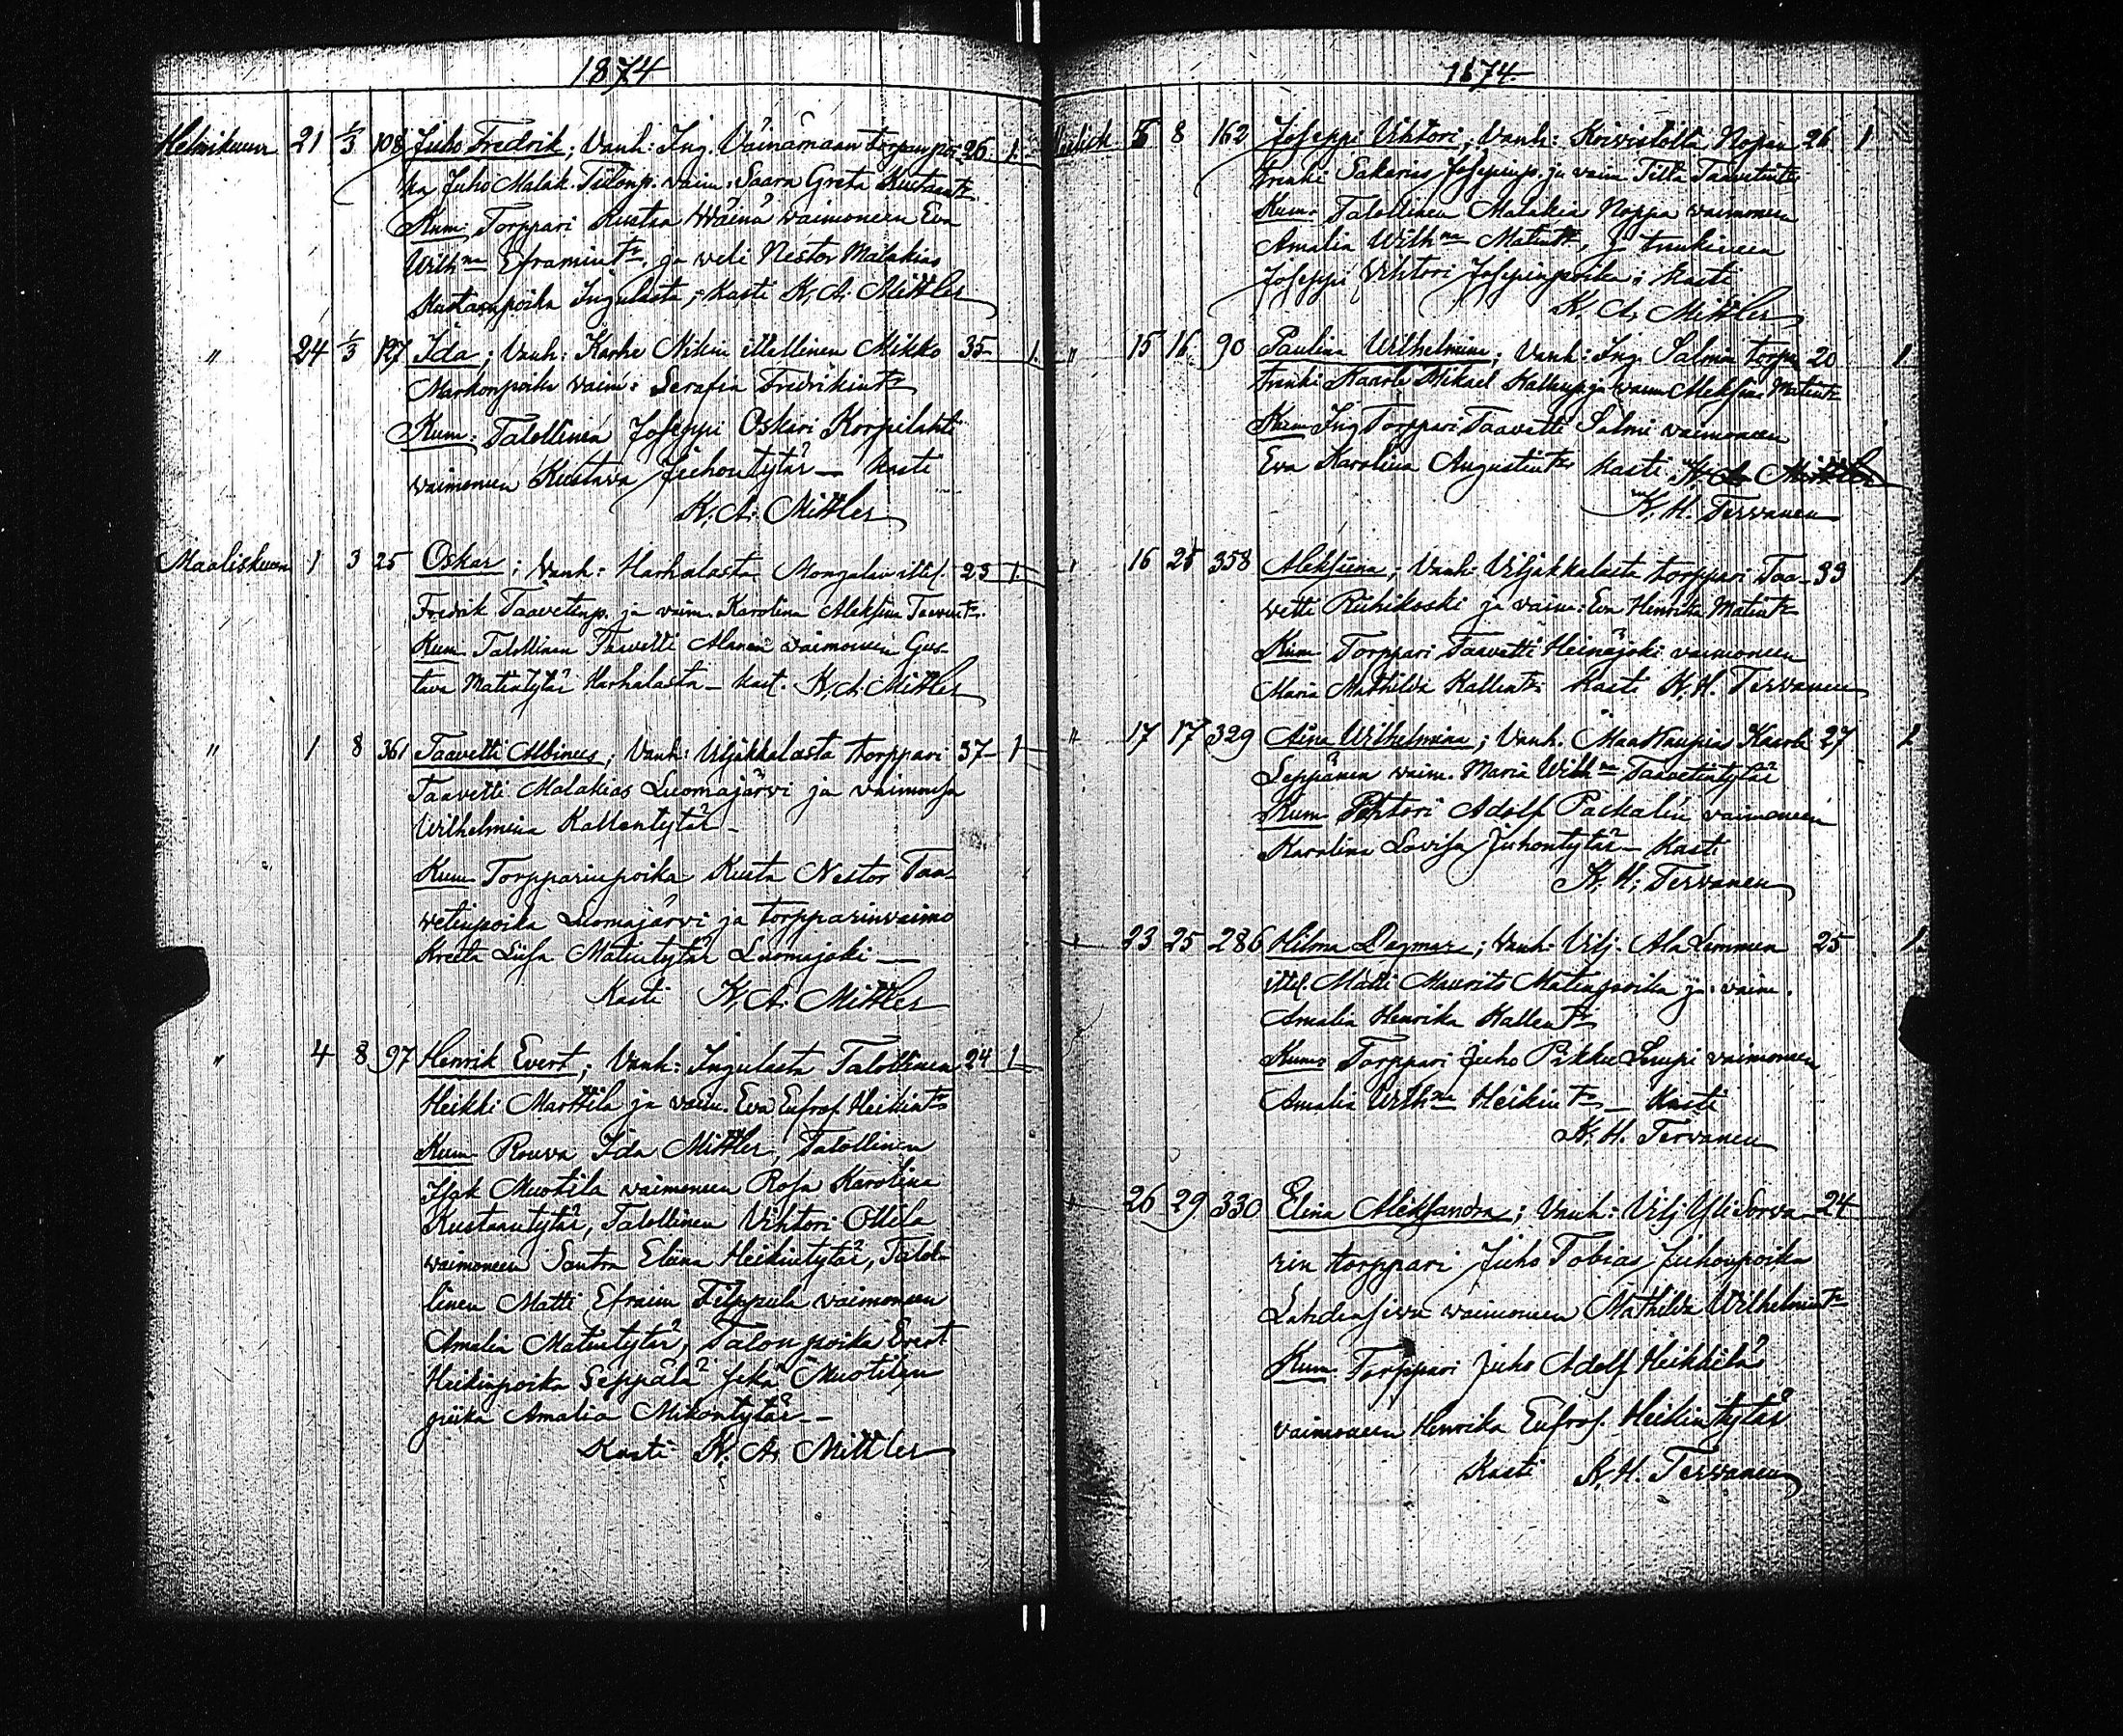 1874
Helmikuun 21 1/3 108 Juho Fredrik; Vanh: Ing. Väinämaan torpan poi- 26 1
ka Juho Malak. Tiilonp. vaim: Saara Greta Kustaantr
Kum: Torppari Kustaa Wäinä vaimoneen Eva
Wilhna Eframintr. ja veli Nestor Malakias
Kustaanpoika Ingulasta; Kasti K. A. Mittler
" 24 1/3 127 Ida; Vanh: Karhe Nikin itellinen Mikko 35 1
Markonpoika vaim: Serafia Fredrikintr
Kum: Talollinen Joseppi Oskari Korpilahti
vaimoneen Kustava Juhontytär — Kasti
K. A. Mittler
Maaliskuun 1 3 25 Oskar; Vanh: Harhalasta Mongalan ittel. 23 1
Fredrik Taavetinp. ja vaim. Karolina Aleksiina Taavintr.
Kum Talollinen Taavetti Alanen vaimoneen Gus-
tava Matintytär Harhalasta — Kast. K. A. Mittler
" 1 8 361 Taavetti Albinus; Vanh: Viljakkalasta torppari 37 1
Taavetti Malakias Luomajärvi ja vaimonsa
Wilhelmina Kallentytär —
Kum Torpparinpoika Kusta Nestor Taa-
vetinpoika Luomajärvi ja torpparinvaimo
Kreeta Liisa Matintytär Luomajoki —
Kasti K. A. Mittler
" 4 8 97 Henrik Evert; Vanh: Ingulasta Talollinen 24 1
Heikki Marttila ja vaim. Eva Eufros. Heikintr
Kum Rouva Ida Mittler, Talollinen
Isak Muotila vaimoneen Rosa Karolina
Kustaantytär, Talollinen Vihtori Ollila
vaimoneen Santra Eliina Heikintytär, Talol-
linen Matti Efraim Filppula vaimoneen
Amalia Matintytär, Talonpoika Evert
Heikinpoika Seppälä sekä Muotilan
piika Amalia Mikontytär —
Kasti K. A. Mittler
1874
5 8 162 Joseppi Vihtori; Vanh: Koivistolta Nopan 26 1
trenki Sakarias Josepinp. ja vaim Tilta Taavetintr
Kum: Talollinen Malakia Noppa vaimoneen
Amalia Wilhna Matintr, ja
Joseppi Vihtori Josepinpoika; Kasti
K. A. Mittler
" 15 16 90 Paulina Wilhelmina; Vanh: Ing. Salmin torpan 20 1
trenki Kaarle Mikael Kallenp. ja vaim Aleksian. Matintr
Kum Ing Torppari Taavetti Salmi vaimoneen
Eva Karolina Augustintr Kasti K. A. Mittler
K. H. Tervanen
" 16 25 358 Aleksiina; Vanh: Viljakkalasta torppari Taa- 33 1
vetti Riihikoski ja vaim: Eva Henrika Matintr
Kum Torppari Taavetti Heinäjoki vaimoneen
Maria Mathilda Kallentr. Kasti K. H. Tervanen
" 17 17 329 Aina Wilhelmina; Vanh. Maakauppias Kaarle 27 1
Leppänen vaim. Maria Wilhna Taavetintytär
Kum Pehtori Adolf Packalin vaimoneen
Karolina Lovisa Juhontytär — Kasti
K. H. Tervanen
" 23 25 286 Hilma Dagmar; Vanh: Vilj. Ala Lammin 25 1
ittel. Matti Maurits Matinpoika ja vaim.
Amalia Henrika Kallentr
Kum: Torppari Juho Pikku Liupi vaimoneen
Amalia Wilhna Heikintr — Kasti
K. H. Tervanen
" 26 29 330 Elina Aleksandra; Vanh: Vilj Yli Sorva- 24
rin torppari Juho Tobias Juhonpoika
Lahdensivu vaimoneen Mathilda Wilhelmintr
Kum Torppari Juho Adolf Heikkilä
vaimoneen Henrika Eufros. Heikintytär
Kasti K. H. Tervanen